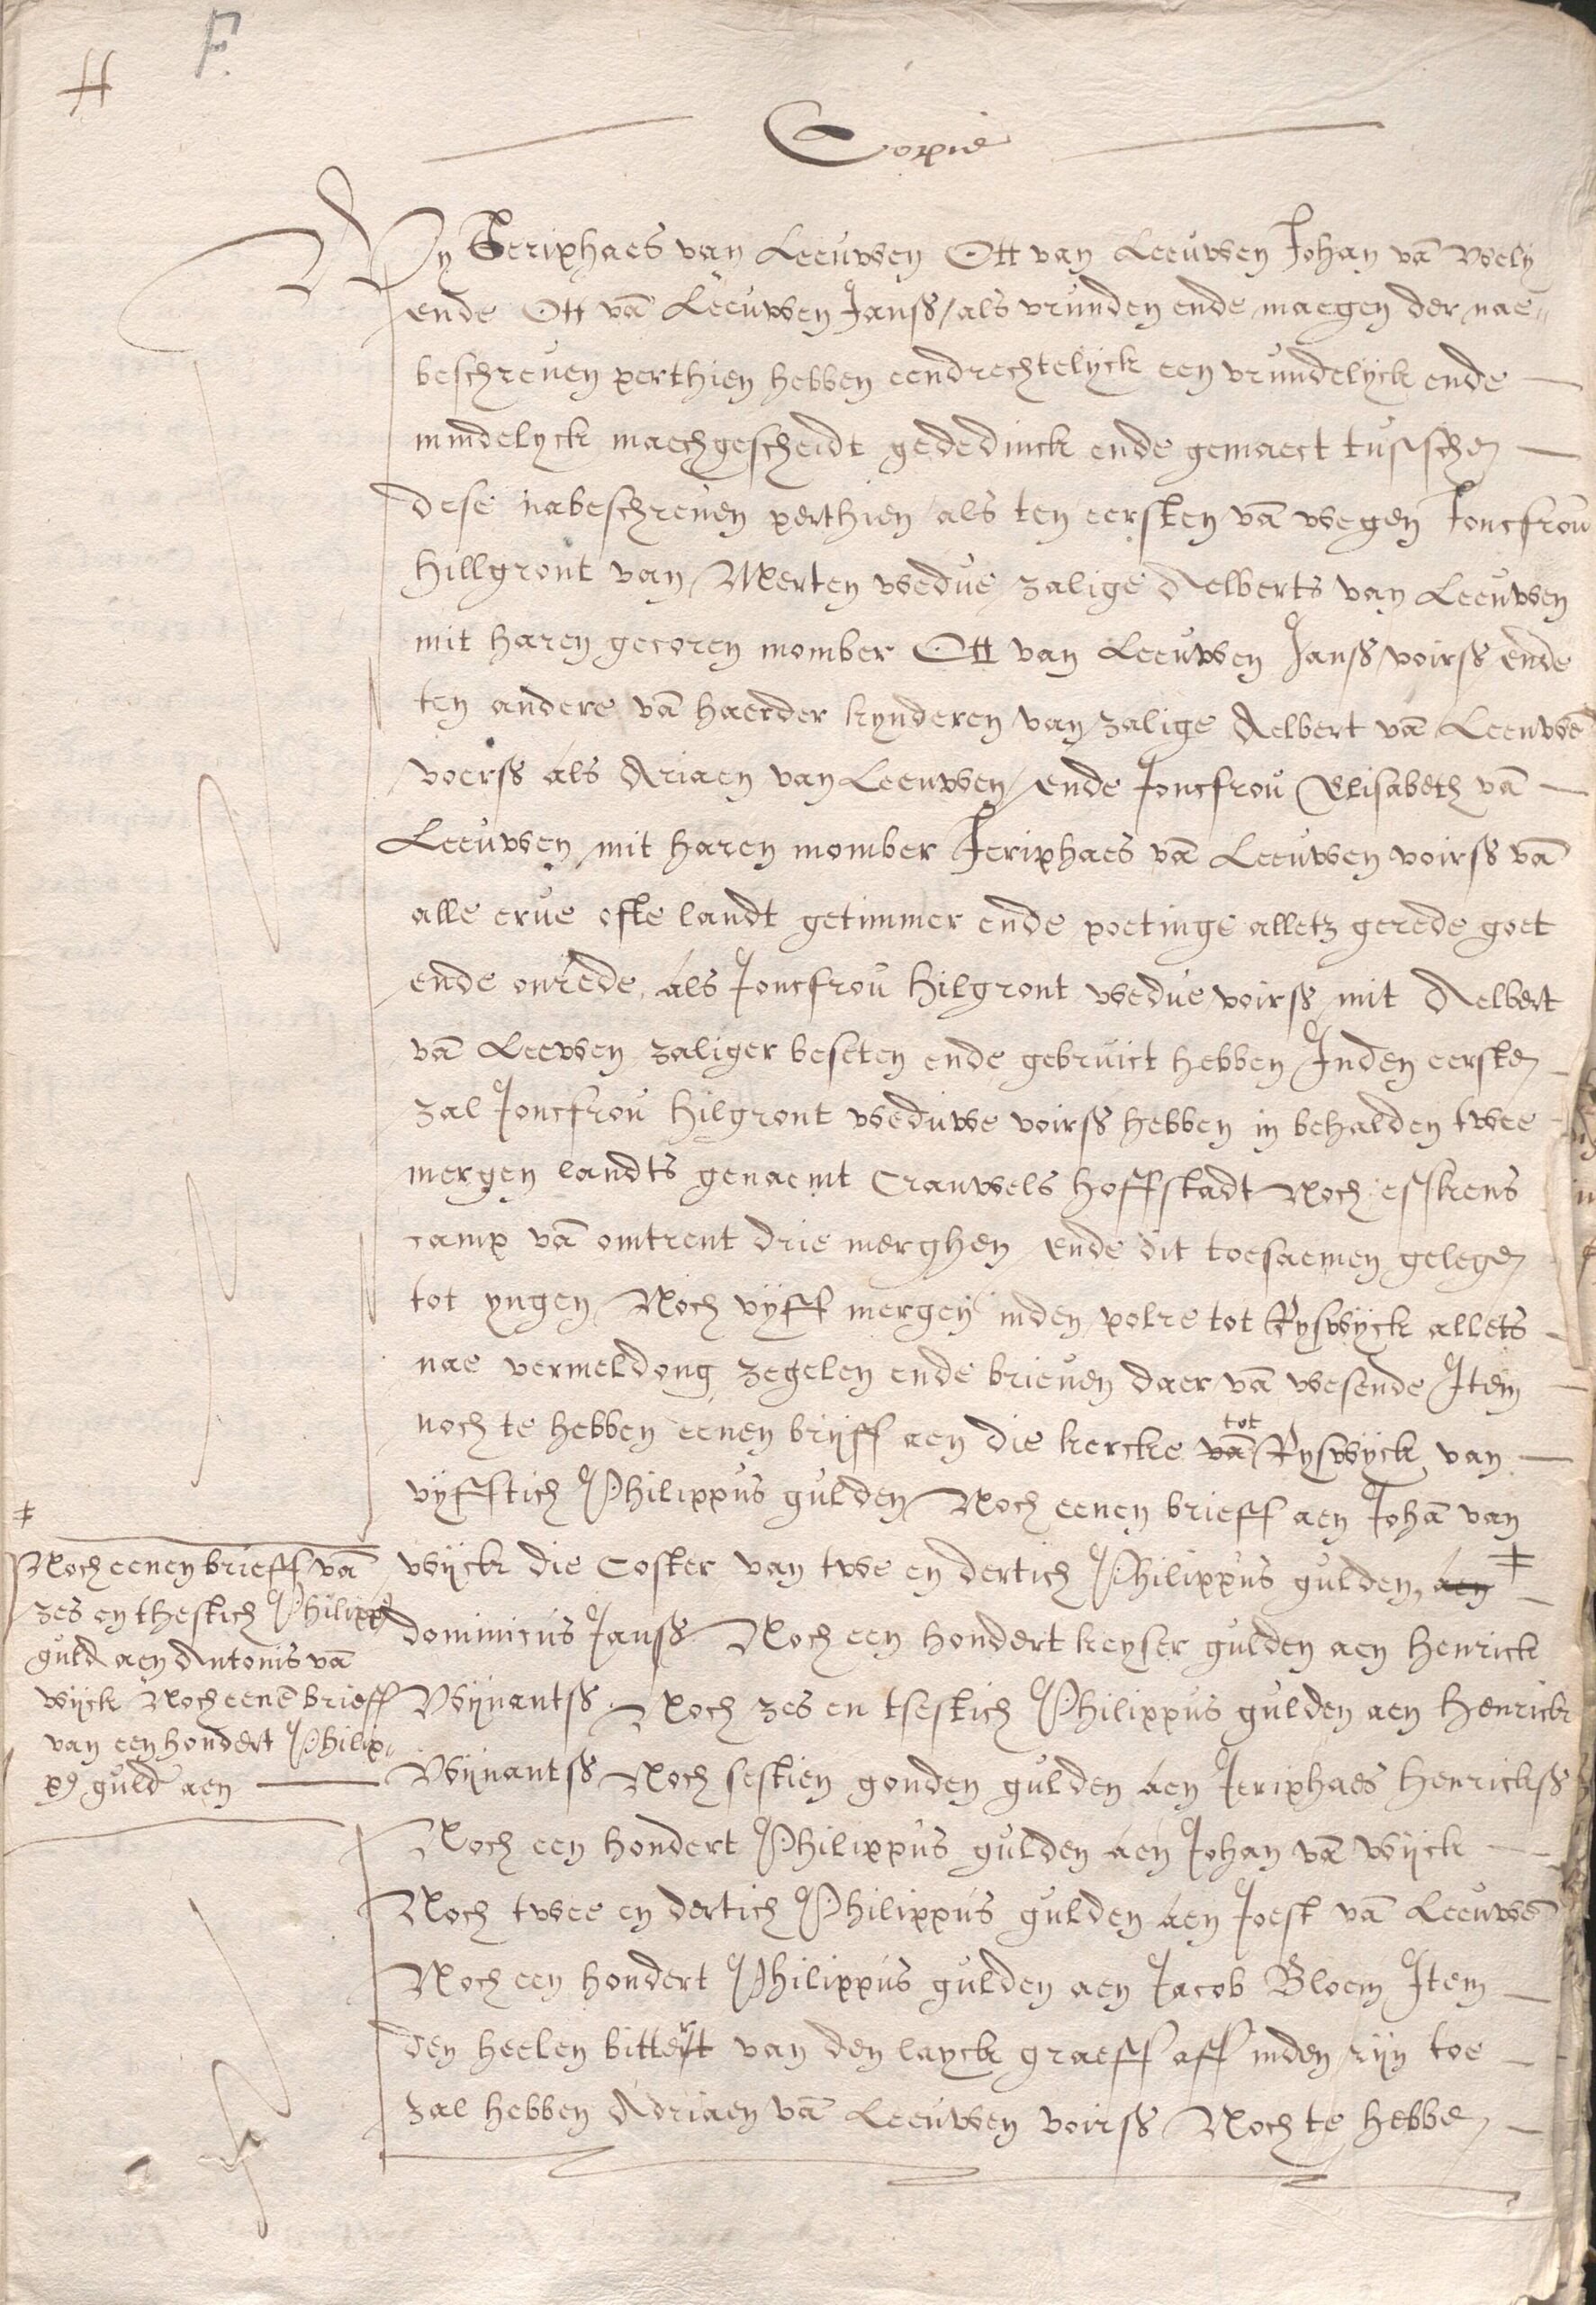 F.
H
Copie
Wy Jeriphaes van Leeuwen Ott van Leeuwen Johan vā Wely
ende Ott vā Leeuwen Janss / als vrunden ende maegen der nae„
beschreven perthien hebben eendrechtelyck een vrundelyck ende —
mindelyck maechgescheidt gededinck ende gemaect tusschen —
dese nabeschreven perthien / als ten eersten vā wegen Joncfrou
Hillgront van Merten wedue zalige Aelberts van Leeuwen
mit haren gecoren momber Ott van Leeuwen Janss voirss ende
ten andere vā haerder kynderen van zalige Aelbert vā Leeuwē
voerss als Ariaen van Leeuwen / ende Joncfrou Elisabeth vā —
Leeuwen mit haren momber Jeriphaes vā Leeuwen voirss vā
alle erve ofte landt getimmer ende poetinge alletz gerede goet
ende onrede, als Joncfrou Hilgront wedue voirss mit Aelbert
vā Leewen zaliger beseten ende gebruict hebben Inden eersten —
zal Joncfrou Hilgront weduwe voirss hebben in behalden twee -
mergen landts genaemt Crauwels hoffstadt Noch eskens
camp vā omtrent drie merghen ende dit toesaemen gelegen
tot yngen Noch vyff mergen inden polre tot Ryswyck allets -
nae vermeldong zegelen ende brieven daer vā wesende Item —
noch te hebben eenen bryff aen die kercke vā tot Ryswyck van —
vyfftich Philippus gulden Noch eenen brieff aen Johā van
wyck die Coster van twe en dertich Philippus gulden, aen ‡ —
dominicus Janss Noch een hondert keyser gulden aen Henrick
Wynantss Noch zes en tsestich Philippus gulden aen Henrick
Wynantss Noch sestien gouden gulden aen Jeriphaes Henrickss
Noch een hondert Philippus gulden aen Johan vā wyck —
Noch twee en dertich Philippus gulden aen Joest vā Leeuwē
Noch een hondert Philippus gulden aen Jacob Bloem Item —
den heelen bittert van den layck graeff aff inden ryn toe —
zal hebben Adriaen vā Leeuwen voirss Noch te hebben —
‡
Noch eenen brieff vā
zes en thestich Philipp9
guld aen Antonis vā
wyck Noch eenē brieff
van een hondert Philip„
p9 guld aen —